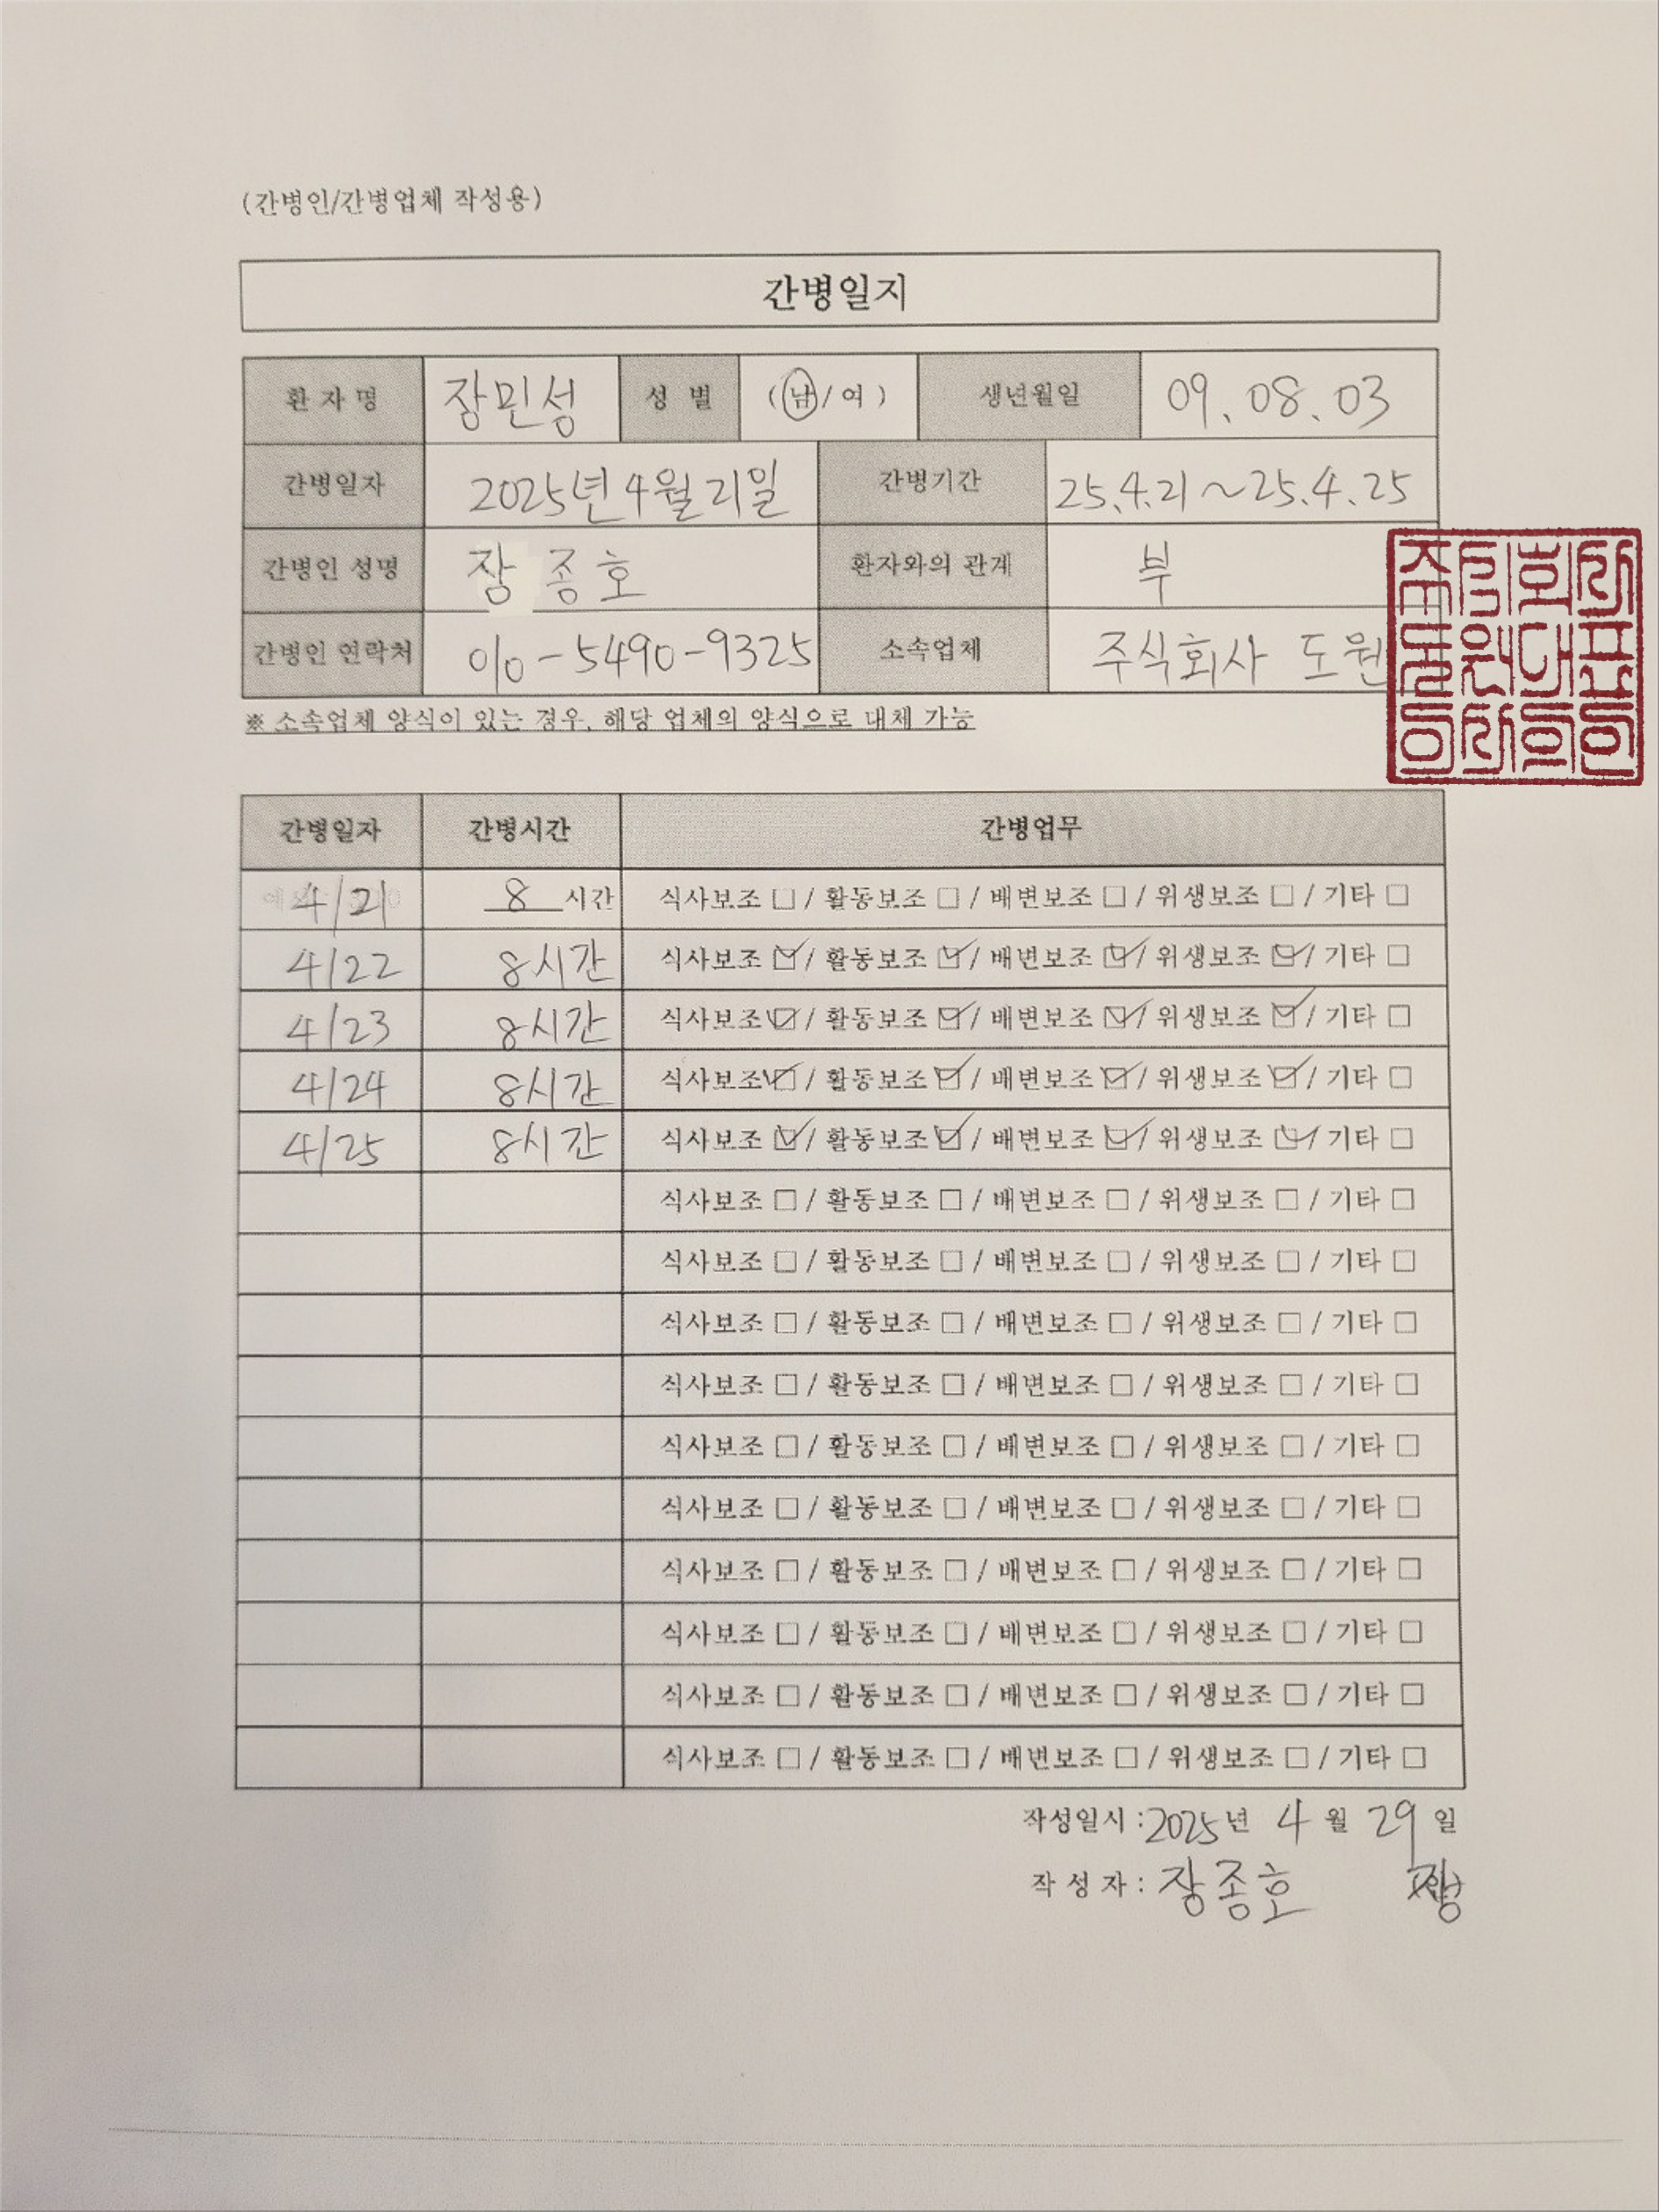 (간병인/간병업체 작성용)
간병일지
환 자 명 장민성 성 별 (남/여) 생년월일 09.08.03
간병일자 2025년 4월 21일 간병기간 25.4.21 ~ 25.4.25
간병인 성명 장종호 환자와의 관계 부
간병인 연락처 010-5490-9325 소속업체 주식회사 도원
※ 소속업체 양식이 있는 경우, 해당 업체의 양식으로 대체 가능
간병일자 간병시간 간병업무
4/21 8 시간 식사보조 □ / 활동보조 □ / 배변보조 □ / 위생보조 □ / 기타 □
4/22 8시간 식사보조 ☑ / 활동보조 ☑ / 배변보조 ☑ / 위생보조 ☑ / 기타 □
4/23 8시간 식사보조 ☑ / 활동보조 ☑ / 배변보조 ☑ / 위생보조 ☑ / 기타 □
4/24 8시간 식사보조 ☑ / 활동보조 ☑ / 배변보조 ☑ / 위생보조 ☑ / 기타 □
4/25 8시간 식사보조 ☑ / 활동보조 ☑ / 배변보조 ☑ / 위생보조 ☑ / 기타 □
식사보조 □ / 활동보조 □ / 배변보조 □ / 위생보조 □ / 기타 □
식사보조 □ / 활동보조 □ / 배변보조 □ / 위생보조 □ / 기타 □
식사보조 □ / 활동보조 □ / 배변보조 □ / 위생보조 □ / 기타 □
식사보조 □ / 활동보조 □ / 배변보조 □ / 위생보조 □ / 기타 □
식사보조 □ / 활동보조 □ / 배변보조 □ / 위생보조 □ / 기타 □
식사보조 □ / 활동보조 □ / 배변보조 □ / 위생보조 □ / 기타 □
식사보조 □ / 활동보조 □ / 배변보조 □ / 위생보조 □ / 기타 □
식사보조 □ / 활동보조 □ / 배변보조 □ / 위생보조 □ / 기타 □
식사보조 □ / 활동보조 □ / 배변보조 □ / 위생보조 □ / 기타 □
식사보조 □ / 활동보조 □ / 배변보조 □ / 위생보조 □ / 기타 □
작성일시 : 2025년 4 월 29 일
작 성 자 : 장종호